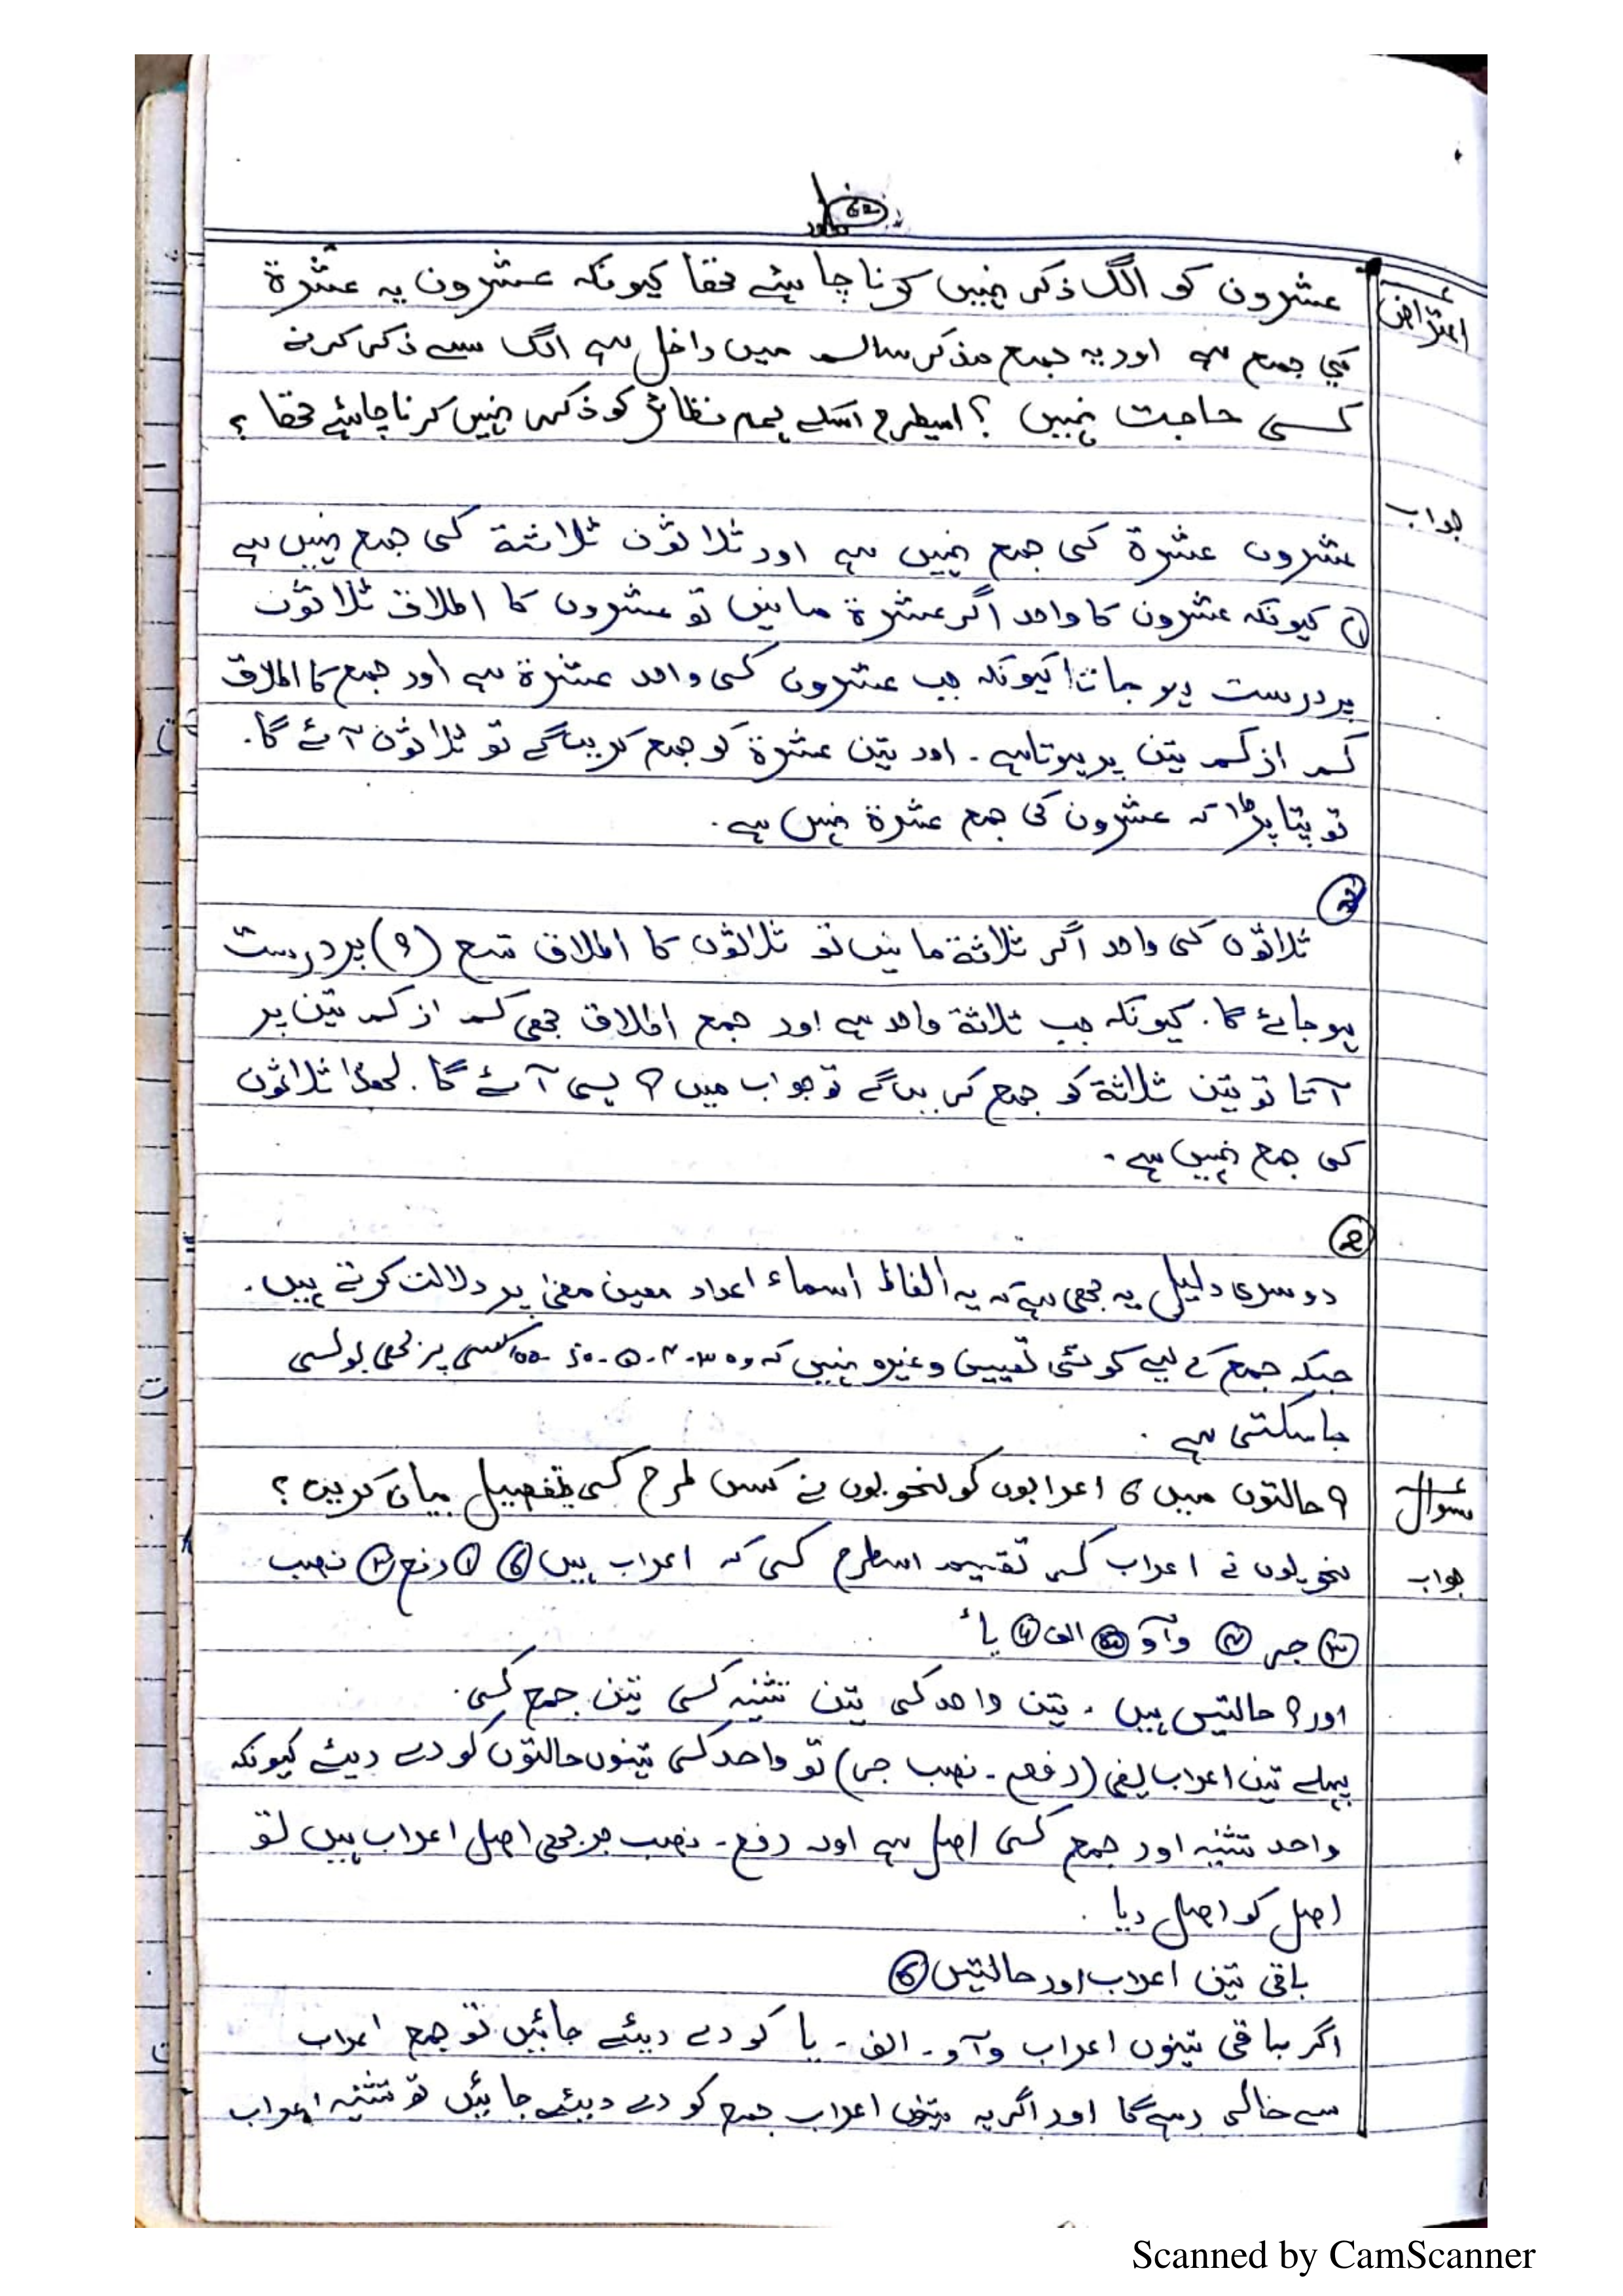 اعتراض
عشرون کو الگ ذکر نہیں کرنا چاہئے تھا کیونکہ عشرون یہ عشرۃ
کی جمع ہے اور یہ جمع مذکر سالم میں داخل ہے الگ سے ذکر کرنے
کسی حاجت نہیں ؟ اسیطرح اسکے ہم نظائر کو ذکر نہیں کرنا چاہئے تھا ؟
جواب
عشرون عشرۃ کی جمع نہیں ہے اور ثلاثون ثلاثۃ کی جمع نہیں ہے
① کیونکہ عشرون کا واحد اگر عشرۃ مانیں تو عشرون کا اطلاق ثلاثون
پر درست ہو جاتا کیونکہ جب عشرون کی واحد عشرۃ ہے اور جمع کا اطلاق
کم از کم تین پر ہوتا ہے ۔ اور تین عشرۃ کو جمع کریں گے تو ثلاثون آئے گا۔
تو پتا پڑا کہ عشرون کی جمع عشرۃ نہیں ہے ۔
ثلاثون کی واحد اگر ثلاثۃ مانیں تو ثلاثون کا اطلاق تسع (۹) پر درست
ہو جائے گا۔ کیونکہ جب ثلاثۃ واحد ہے اور جمع اطلاق بھی کم از کم تین پر
آتا تو تین ثلاثۃ کو جمع کریں گے تو جواب میں ۹ ہی آئے گا۔ لھذا ثلاثون
کی جمع نہیں ہے ۔
②
دوسری دلیل یہ بھی ہے کہ یہ الفاظ اسماء اعداد معین معنیٰ پر دلالت کرتے ہیں ۔
جبکہ جمع کے لیے کوئی تعیین وغیرہ نہیں کہ وہ ۳۔۴۔۵۔ کسی پر بھی بولی
جاسکتی ہے ۔
سوال
۹ حالتوں میں 6 اعرابوں کو نحویوں نے کس طرح کی تفصیل بیان کریں ؟
جواب
نحویوں نے اعراب کی تقسیم اسطرح کی کہ اعراب ہیں ⑥ ① رفع ② نصب
③ جر ④ واؤ ⑤ الف ⑥ یا
اور ۹ حالتیں ہیں ۔ تین واحد کی تین تثنیہ کی تین جمع کی۔
پہلے تین اعراب یعنی (رفع ۔ نصب جر) تو واحد کی تینوں حالتوں کو دے دیئے کیونکہ
واحد تثنیہ اور جمع کی اصل ہے اور رفع ۔ نصب جر بھی اصل اعراب ہیں تو
اصل کو اصل دیا ۔
باقی تین اعراب اور حالتیں ⑥
اگر باقی تینوں اعراب واؤ ۔ الف ۔ یا کو دے دیئے جائیں تو جمع اعراب
سے خالی رہے گا اور اگر یہ تینوں اعراب جمع کو دے دیئے جائیں تو تثنیہ اعراب
Scanned by CamScanner